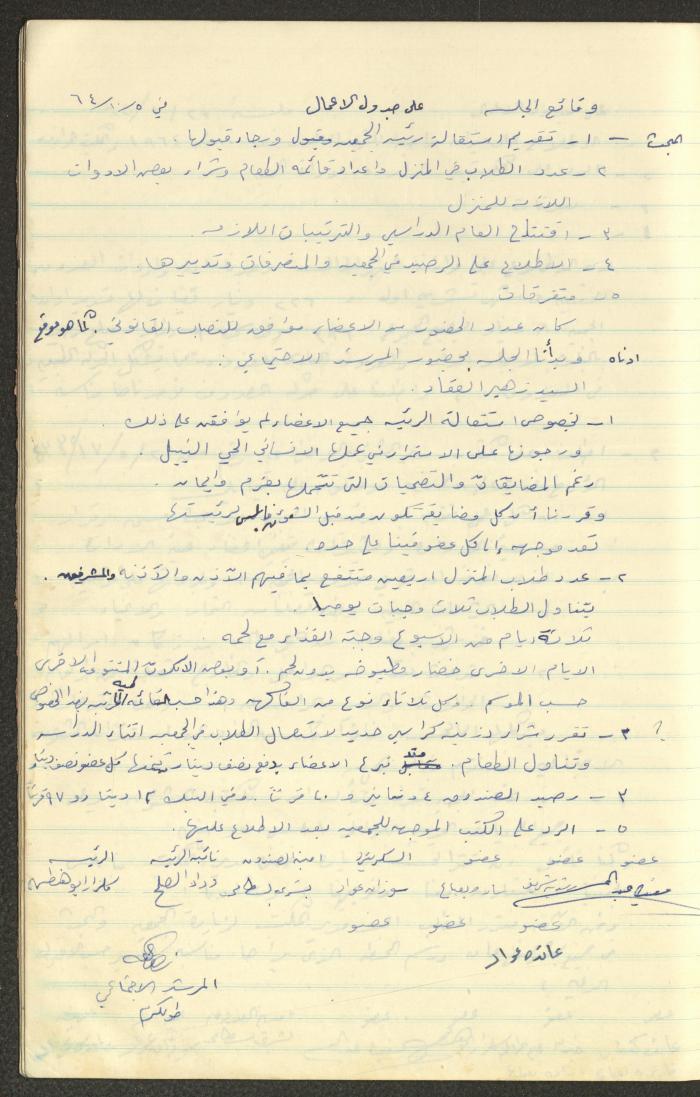 وقائع الجلسه على جدول الاعمال في ٥/١٠/٦٤
البحث – ١- تقديم استقالة رئيسة الجمعيه وقبول ورجاء قبولها.
٢- عدد الطلاب في المنزل واعداد قائمة الطعام وشراء بعض الادوات
اللازمه للمنزل
٣- افتتاح العام الدراسي والترتيبات اللازمه
٤- الاطلاع على الرصيد في الجمعيه والمتصرفات وتدبيرها.
٥- متفرقات
كان عدد الحضور من الاعضاء موافق للنصاب القانوني. كما هو موقع
ادناه وبدأنا الجلسه بحضور المرشد الاجتماعي:
السيد زهير العقاد.
١- بخصوص استقالة الرئيسه جميع الاعضاء لم يوافقن على ذلك
ورجونها على الاستمرار في عملها الانساني الحي النبيل.
رغم المضايقات والتضحيات التي تتحملها بعزم وايمان.
وقررنا أن كل مضايقة تكون من قبل الشؤون لرئيستها
تعد موجهه الى كل عضو فينا على حده.
٢- عدد طلاب المنزل اربعين منتفع بما فيهم الآذن والآذنه والمشرفين.
يتناول الطلاب ثلاث وجبات يوميا.
ثلاثة ايام من الاسبوع وجبة الغذاء مع لحمه.
الايام الاخرى خضار مطبوخه بدون لحم. أو بعض الاكلات المتنوعه الاخرى
حسب الموسم. وكل ثلاثاء نوع من الفاكهه وهذا حسب القائمه لهذا الخصوص
؟ ٣- تقرر شراء دزينة كراسي جديدة لاستعمال الطلاب في الجمعيه اثناء الدراسه
وتناول الطعام. وقد تبرع الاعضاء بدفع نصف دينار كل عضو نصف دينار
٣- رصيد الصندوق ٤ دنانير و ٤٠ قرشا. وفي البنك ١٢ دينار و ٩٧ قرشا
٥- الرد على الكتب الموجهه للجمعيه بعد الاطلاع عليها.
عضو عضو عضو السكرتيره امينة الصندوق نائبة الرئيسه الرئيسه
سوزان عواد يسرى وداد الصلح
عضو عضو عضو
عائده مراد
المرشد الاجتماعي
طولكرم